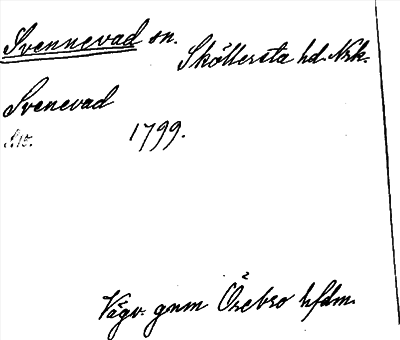 Svennevad sn.
Sköllersta hd. Nrk.
Svenevad
1799.
Vägv. gnm Örebro hfdm.